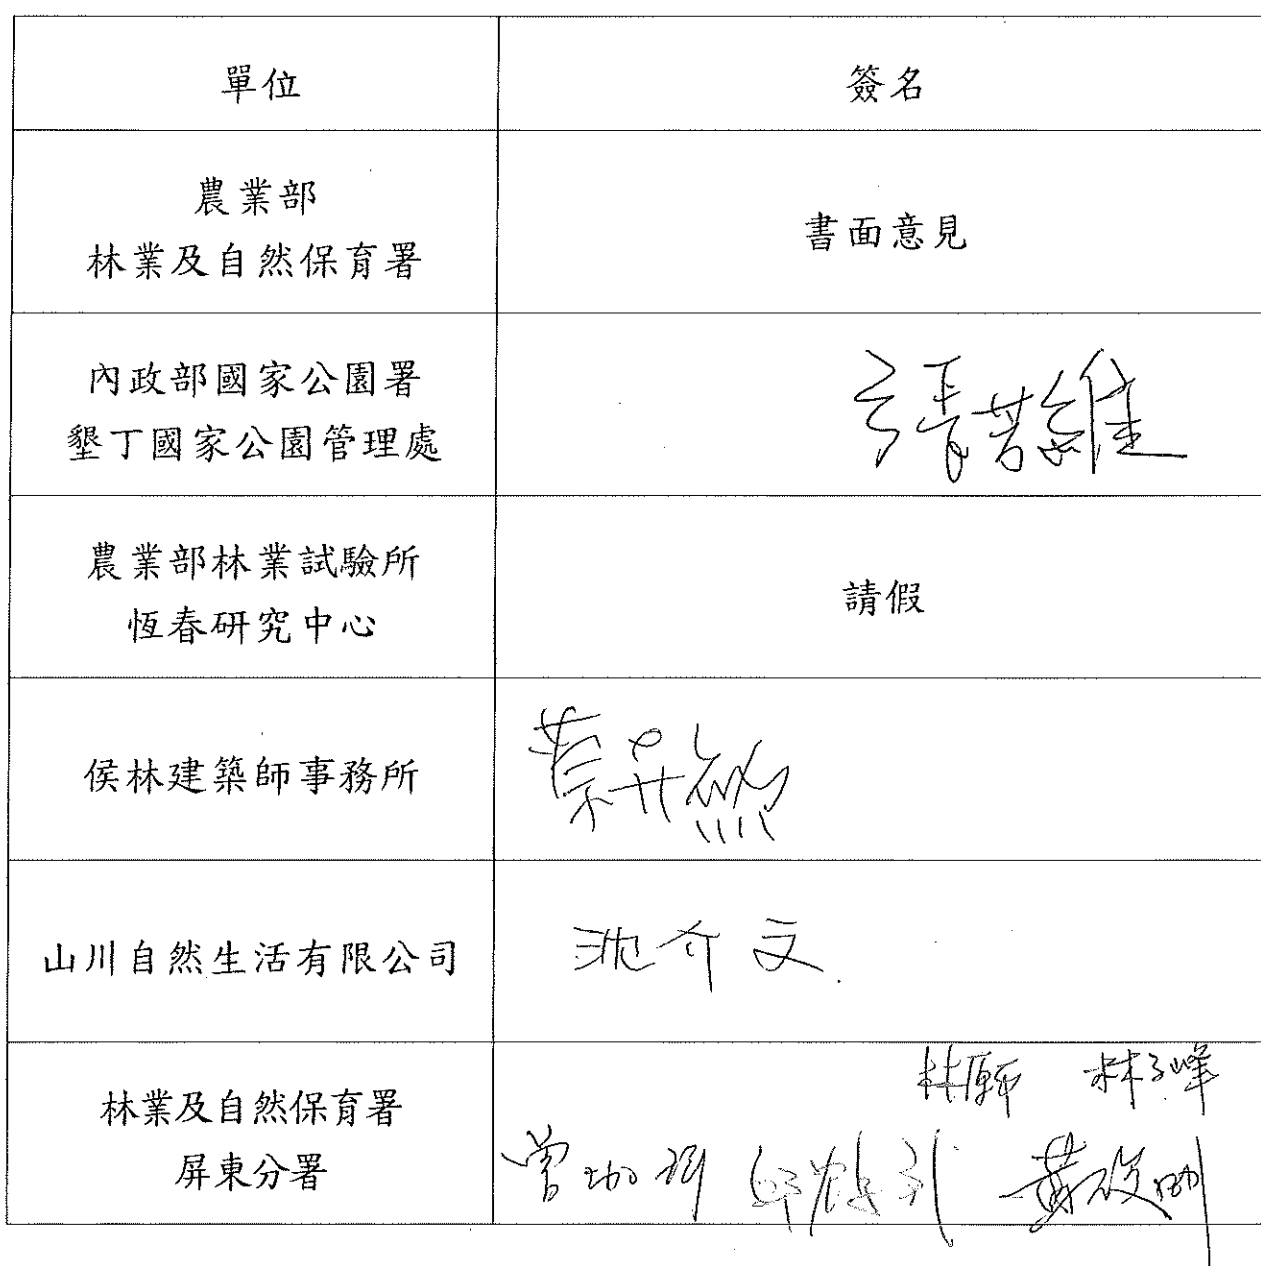 單位
簽名
農業部
林業及自然保育署
書面意見
內政部國家公園署
墾丁國家公園管理處
農業部林業試驗所
恆春研究中心
請假
侯林建築師事務所
山川自然生活有限公司
沈介文
林業及自然保育署
屏東分署
林子峰